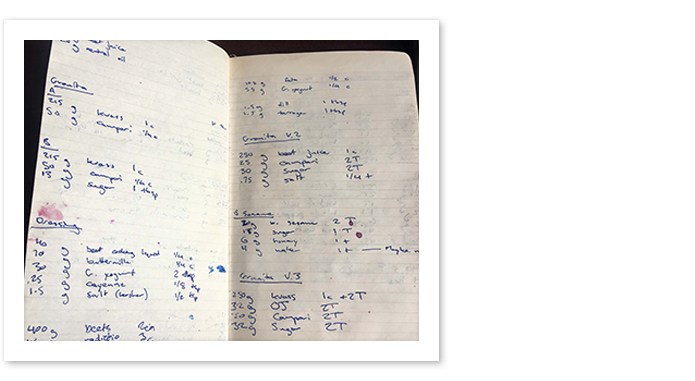 beet juice
neutral oil
Granita
A
215 g kvass 1 c
50 g Campari 1/4 c
B
215 g kvass 1 c
g Campari 1/4 c
g sugar 1 tbsp
Dressing
g beet cooking liquid
g buttermilk 1/4 c
30 g G. yogurt 2 tbsp
.25 g cayenne 1/8 tsp
1.5 g salt (kosher) 1/2 tsp
400 g beets
g feta 1/4 c
g G. yogurt c
1.5 g dill 1 tbsp
g tarragon 1 tbsp
Granita V.2
250 g beet juice 1 c.
25 g Campari 2T
30 g sugar 2T
.75 g salt 1/4 t
g w. sesame 2 T
g sugar 1 T
6 g honey 1 t
g water 1 t — Maybe
Granita V.3
250 g kvass 1c +2T
32 g OJ 2T
g Campari 2T
32 g Sugar 2T